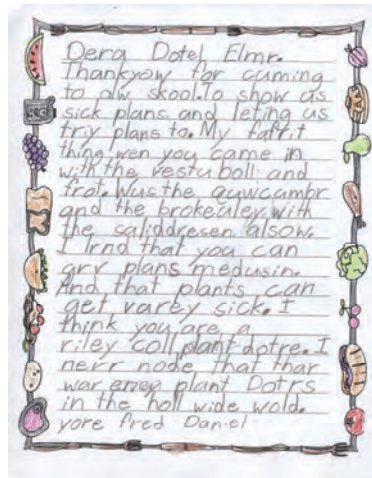 Dera Dotel Elmr.
Thankyow for cuming
to alw skool. To show as
sick plans and leting us
triy plans to. My fafrit
thing wen you came in
with the vestuboll and
frot. Wus the quwicambr
and the brokealey with
the saliddresen alsow.
I lrnd that you can
grv plans medusin.
And that plants can
get varey sick. I
think you are a
riley coll plant dotre. I
nerr node that thar
war eney plant Dotrs
in the holl wide wold.
yore fred Daniel